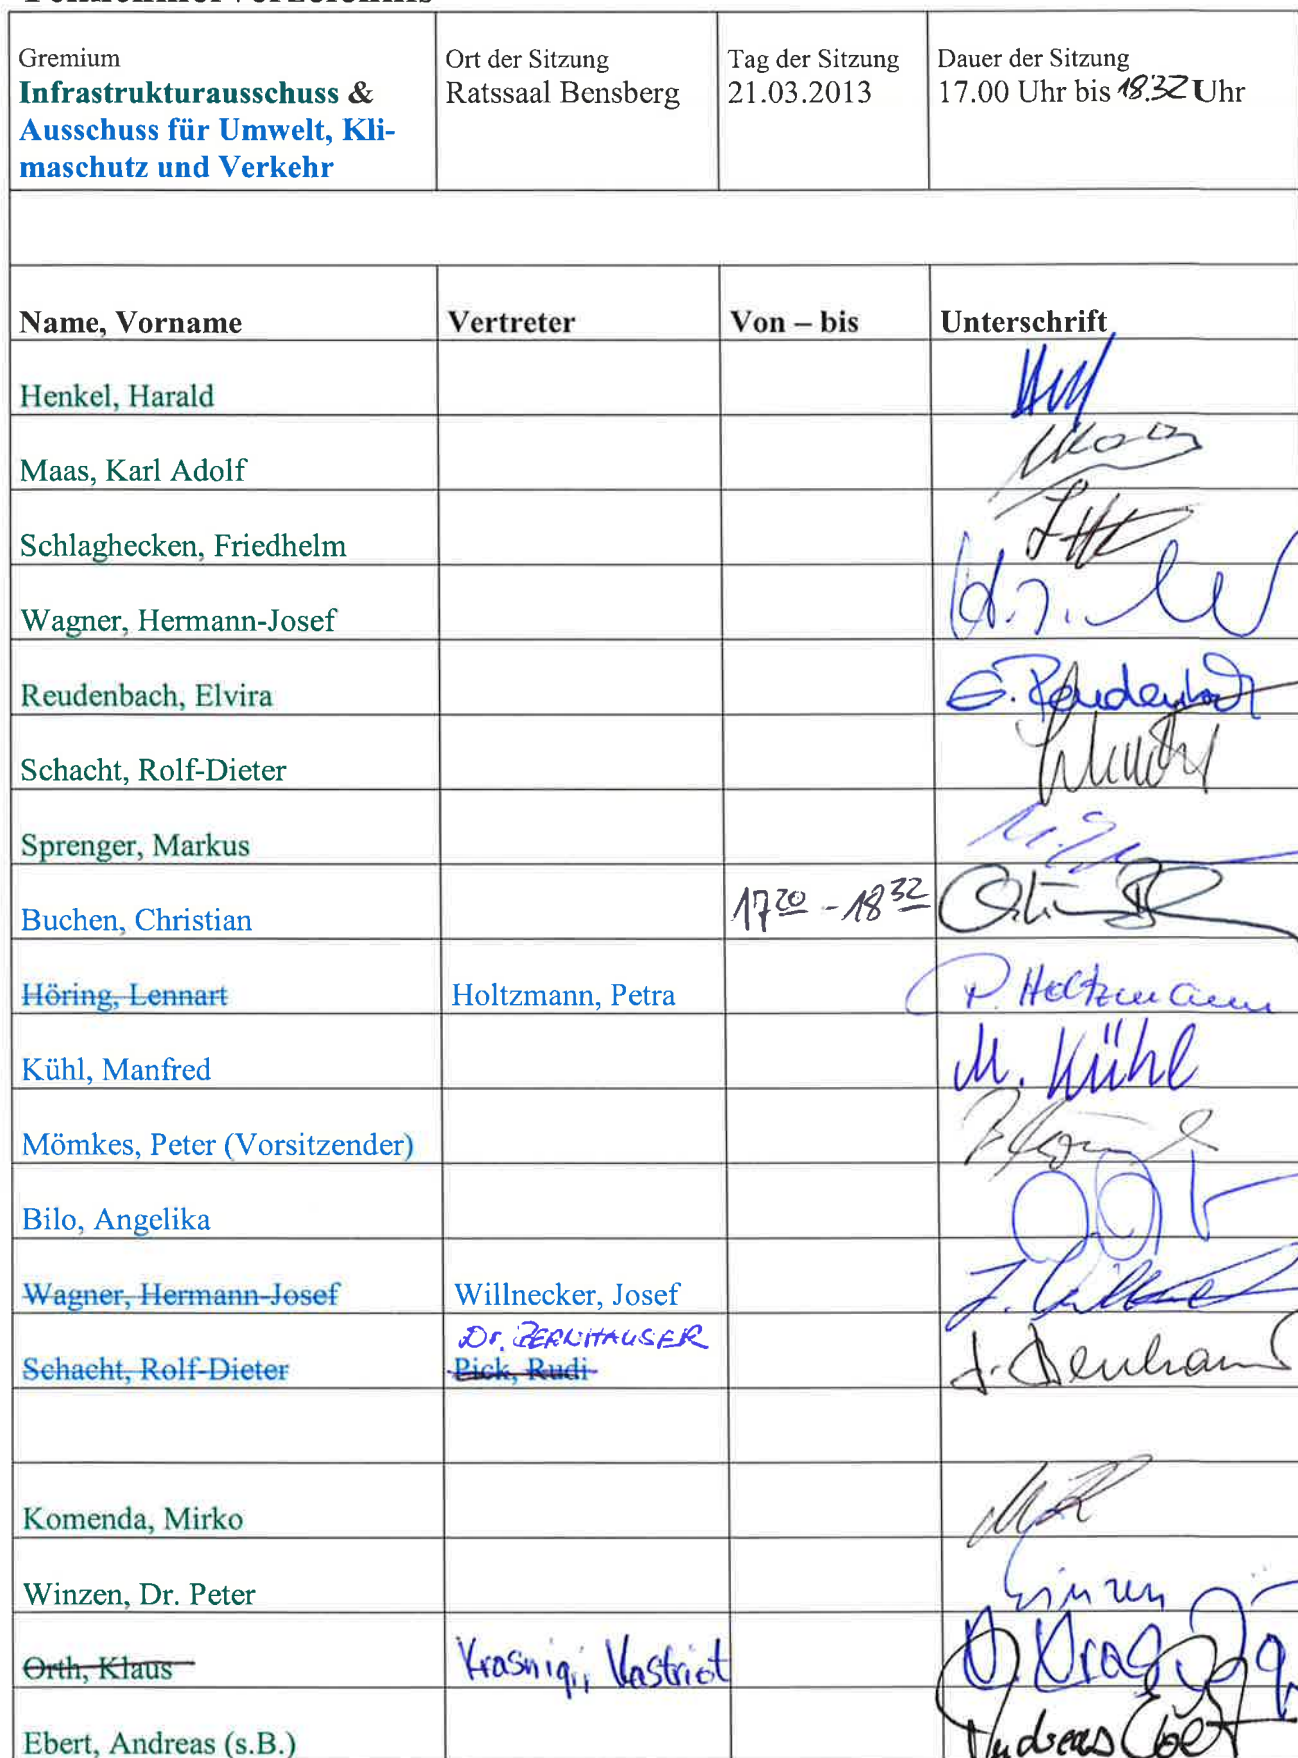 Gremium
Infrastrukturausschuss &
Ausschuss für Umwelt, Kli-
maschutz und Verkehr
Ort der Sitzung
Ratssaal Bensberg
Tag der Sitzung
21.03.2013
Dauer der Sitzung
17.00 Uhr bis 18.32 Uhr
Name, Vorname Vertreter Von – bis Unterschrift
Henkel, Harald
Maas, Karl Adolf Maas
Schlaghecken, Friedhelm
Wagner, Hermann-Josef
Reudenbach, Elvira E. Reudenbach
Schacht, Rolf-Dieter
Sprenger, Markus
Buchen, Christian 17 20 - 18 32
Höring, Lennart Holtzmann, Petra P. Holtzmann
Kühl, Manfred M. Kühl
Mömkes, Peter (Vorsitzender)
Bilo, Angelika
Wagner, Hermann-Josef Willnecker, Josef
Dr.
Schacht, Rolf-Dieter Pick, Rudi
Komenda, Mirko
Winzen, Dr. Peter Winzen
Orth, Klaus Krasniqi, Kastriot
Ebert, Andreas (s.B.) Andreas Ebert